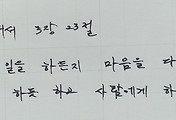 서 3장 23절
일을 하든지 마음을 다
하듯 하고 사람에게 하